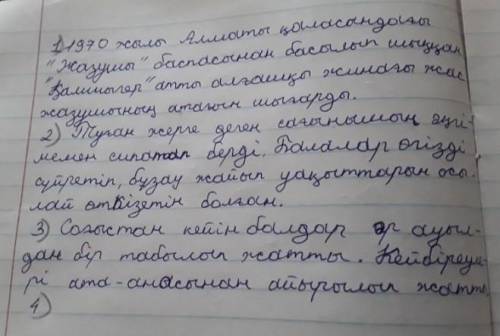 1) 1970 жылы Алматы қаласандағы
"Жазушы" баспасынан басылып шыққан
"Қамшыгер" атты алғашқы жинағы жас
жазушының атағын шығарды.
2) Туған жерге деген сағынышың әңгі-
мемен сипатап берді. Балалар өгізді
сүйретіп, бұзау жайып уақыттарын осы-
лай өткізетін болған.
3) Соғыстан кейін балдар әр ауыл-
дан бір табылып жатты. Кейбіреуле-
рі ата-анасынан айырылып жатты.
4)